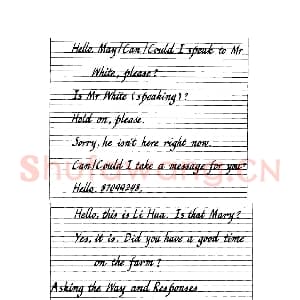 Hello. May/Can/Could I speak to Mr
White, please?
Is Mr White (speaking)?
Hold on, please.
Sorry, he isn't here right now.
Can/Could I take a message for you?
Hello. 87099298.
Hello, this is Li Hua. Is that Mary?
Yes, it is. Did you have a good time
on the farm?
Asking the Way and Responses